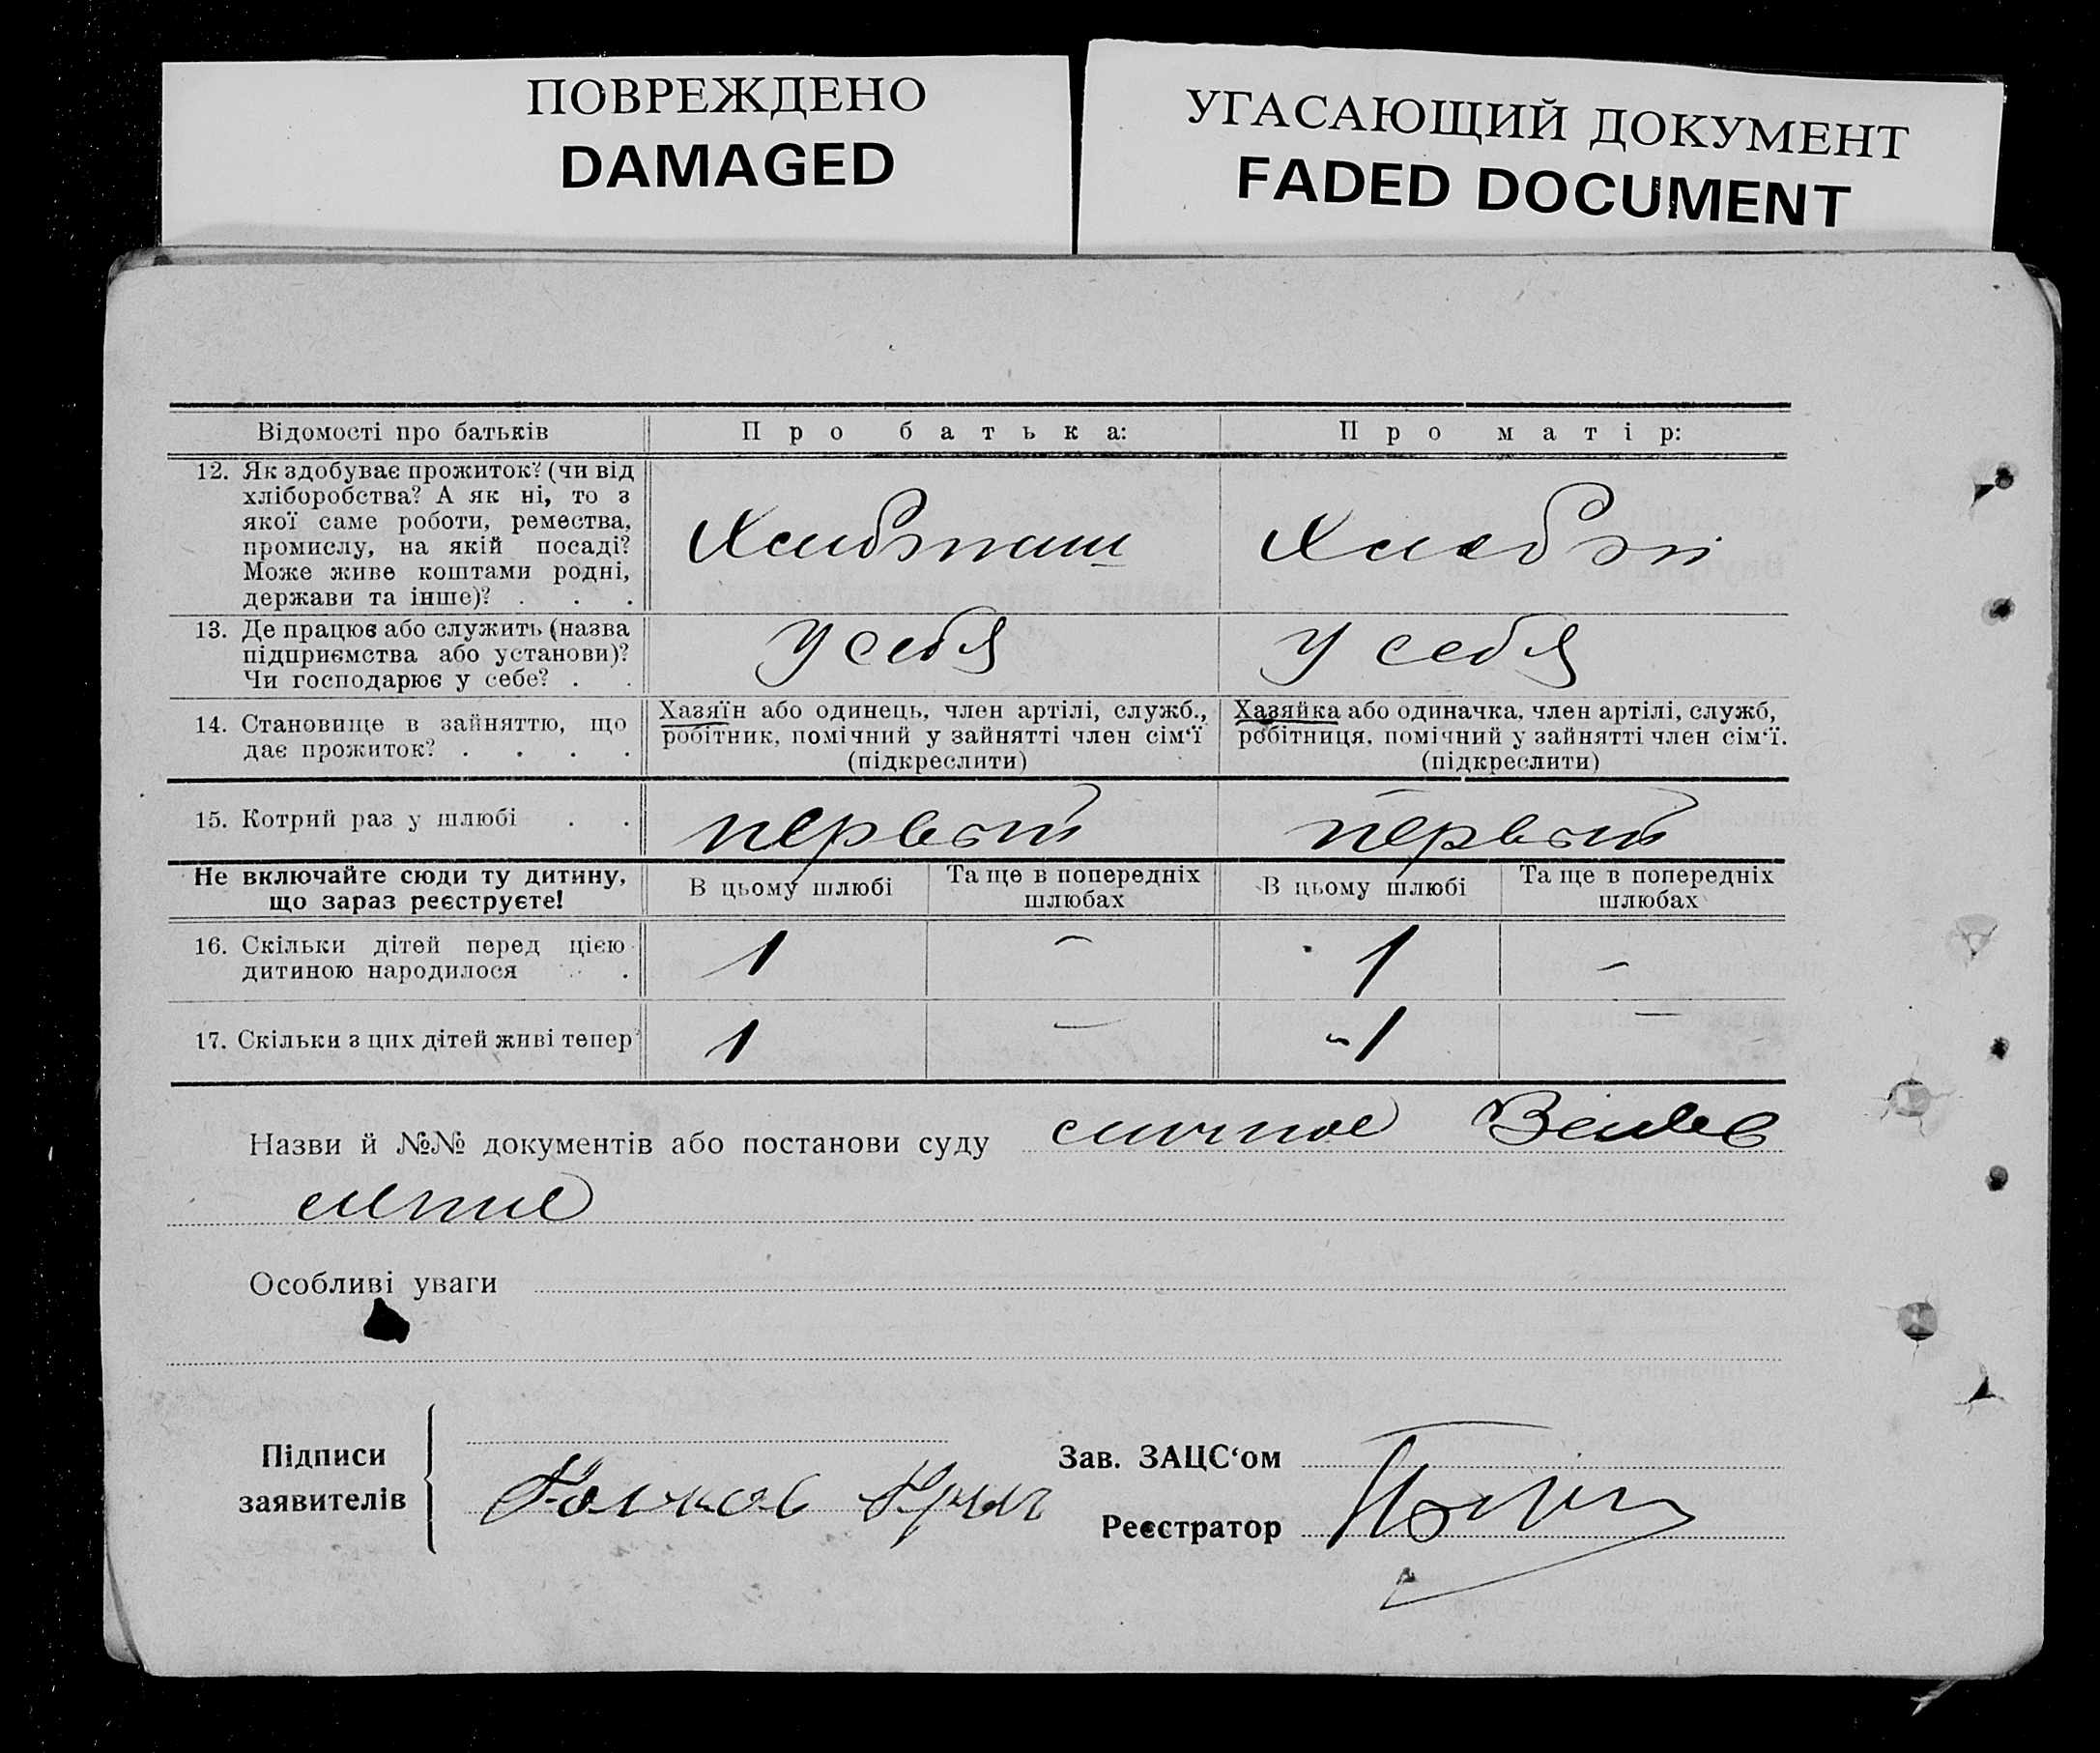 ПОВРЕЖДЕНО
DAMAGED
УГАСАЮЩИЙ ДОКУМЕНТ
FADED DOCUMENT
Відомості про батьків
Про батька:
Про матір:
12. Як здобуває прожиток? (чи від
хліборобства? А як ні, то з
якої саме роботи, ремества,
промислу, на якій посаді?
Може живе коштами родні,
держави та інше)? . . .
13. Де працює або служить (назва
підприємства або установи)?
Чи господарює у себе? . .
у себя
у себя
14. Становище в зайняттю, що
дає прожиток? . . . .
Хазяїн або одинець, член артілі, служб.,
робітник, помічний у зайнятті член сім‘ї
(підкреслити)
Хазяйка або одиначка, член артілі, служб,
робітниця, помічний у зайнятті член сім‘ї.
(підкреслити)
15. Котрий раз у шлюбі . .
первый
первый
Не включайте сюди ту дитину,
що зараз реєструєте!
В цьому шлюбі
Та ще в попередніх
шлюбах
В цьому шлюбі
Та ще в попередніх
шлюбах
16. Скільки дітей перед цією
дитиною народилося .
1
–
1
–
17. Скільки з цих дітей живі тепер
1
–
1
–
Назви й №№ документів або постанови суду
Особливі уваги
Підписи
заявителів
Зав. ЗАЦС‘ом
Реєстратор